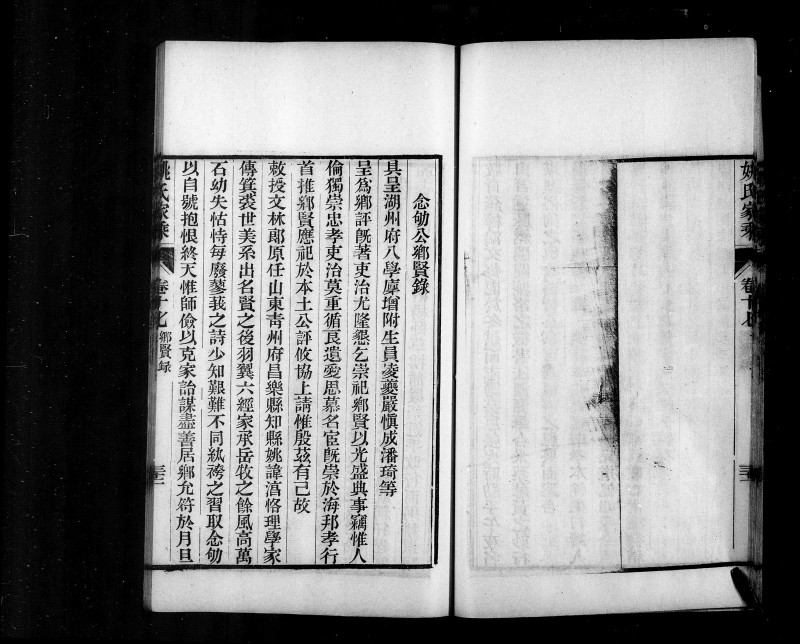 姚氏家乘
卷十七
念劬公鄉賢錄
具呈湖州府八學廩增附生員凌夔嚴愼成潘琦等
呈爲鄉評既著吏治尤隆懇乞崇祀鄉賢以光盛典事竊惟人
倫獨崇忠孝吏治莫重循良遺愛思慕名宦既崇於海邦孝行
首推鄉賢應祀於本土公評攸協上請惟殷茲有己故
敕授文林郎原任山東靑州府昌樂縣知縣姚諱淓恪理學家
傳箕裘世美系出名賢之後羽翼六經家承岳牧之餘風高萬
石幼失怙恃每廢蓼莪之詩少知艱難不同紈袴之習取念劬
以自號抱恨終天惟師儉以克家詒謀盡善居鄉允符於月旦
姚氏家乘
卷十七
鄉賢錄